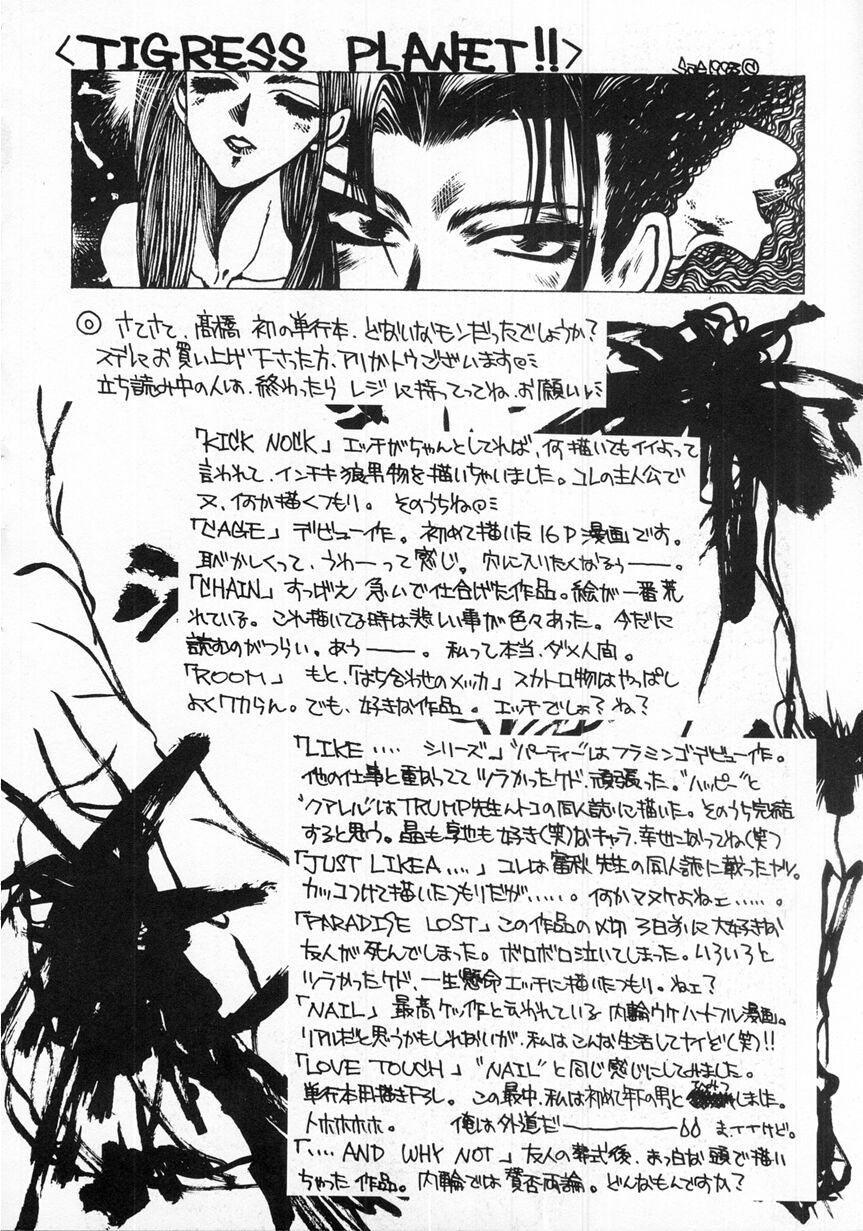 <TIGRESS PLANET!!>
◎ さてさて、髙橋 初の単行本、どないなモンだったでしょうか?
スデにお買い上げ下さった方、アリがトウございます
立ち読み中の人は、終わったら レジに持ってってね、お願い
「KICK NOCK」エッチがちゃんとしてれば、何描いてもイイよって
言われて、インチキ狼男物を描いちゃいました。コレの主人公で
又、何か描くつもり。そのうちね
「CAGE」デビュー作。初めて描いた16P漫画です。
恥かしくって、うわーって感じ。穴に入りたくなるぅ――。
「CHAIN」すっぱえ 急いで仕合げた作品。絵が一番荒
れている。これ描いてる時は悲しい事が色々あった。今だに
読むのがつらい。あぅ――。私って本当、ダメ人間。
「ROOM」もと、「はち合わせのメッカ」スカトロ物はやっぱし
よくワカらん。でも、好きな作品。エッチでしょ?ね?
「LIKE‥‥シリーズ」"パーティー"はフラミンゴデビュー作。
他の仕事と重なってて ツラかったケド、頑張った。"ハッピー"と
"クアレル"はTRUMP先生んトコの同人誌に描いた。そのうち完結
すると思う。晶も享也も好き(笑)なキャラ、幸せになってね(笑)
「JUST LIKE A‥‥」コレは 先生の同人誌に載ったヤツ。
カッコつけて描いたつもりだが‥‥‥。何かマヌケよねェ‥‥‥。
「PARADISE LOST」この作品の〆切 3日前に大好きな
友人が死んでしまった。ボロボロ泣いてしまった。いろいろと
ツラかったケド、一生懸命エッチに描いたつもり。ねェ?
「NAIL」最高ケッ作と云われている内輪ウケハートフル漫画。
リアルだと思うかもしれないが、私はこんな生活してナイぞ(笑)!!
「LOVE TOUCH」"NAIL"と同じ感じにしてみました。
単行本用描き下ろし。この最中、私は初めて年下の男と しました。
トホホホホ。 俺は外道だ―――― ま、イイけど。
「‥‥AND WHY NOT」友人の葬式後、まっ白な頭で描い
ちゃった作品。内輪では賛否両論。どんなもんですか?